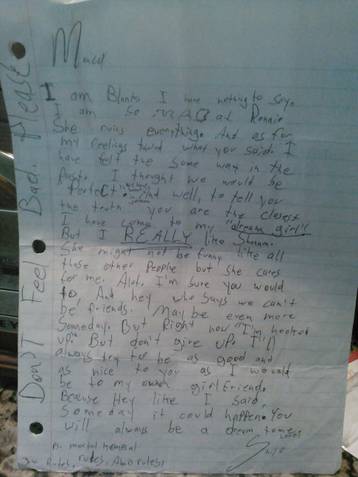 Don't Feel Bad. Please
I am Blank. I have nothing to say.
I am so MAD at Ronnie
She ruins everything. And as for
my feelings twrd what you said. I
have felt the same way in the
past. I thought we would be
Perfect. And well, to tell you
the truth you are the closest
I have come to my "dream girl"
But I REALLY like
She might not be funny like all
these other People but she cares
for me, Alot. I'm sure you would
to. And hey who says we can't
be friends. May be even more
Someday. But Right now I'm hooked
up. But don't give up. I'll
always try to be as good and
as nice to you as I would
be to my own girlfriend.
Because Hey like I said,
Someday it could happen. You
will always be a dream
mortal
rules. Also rules!